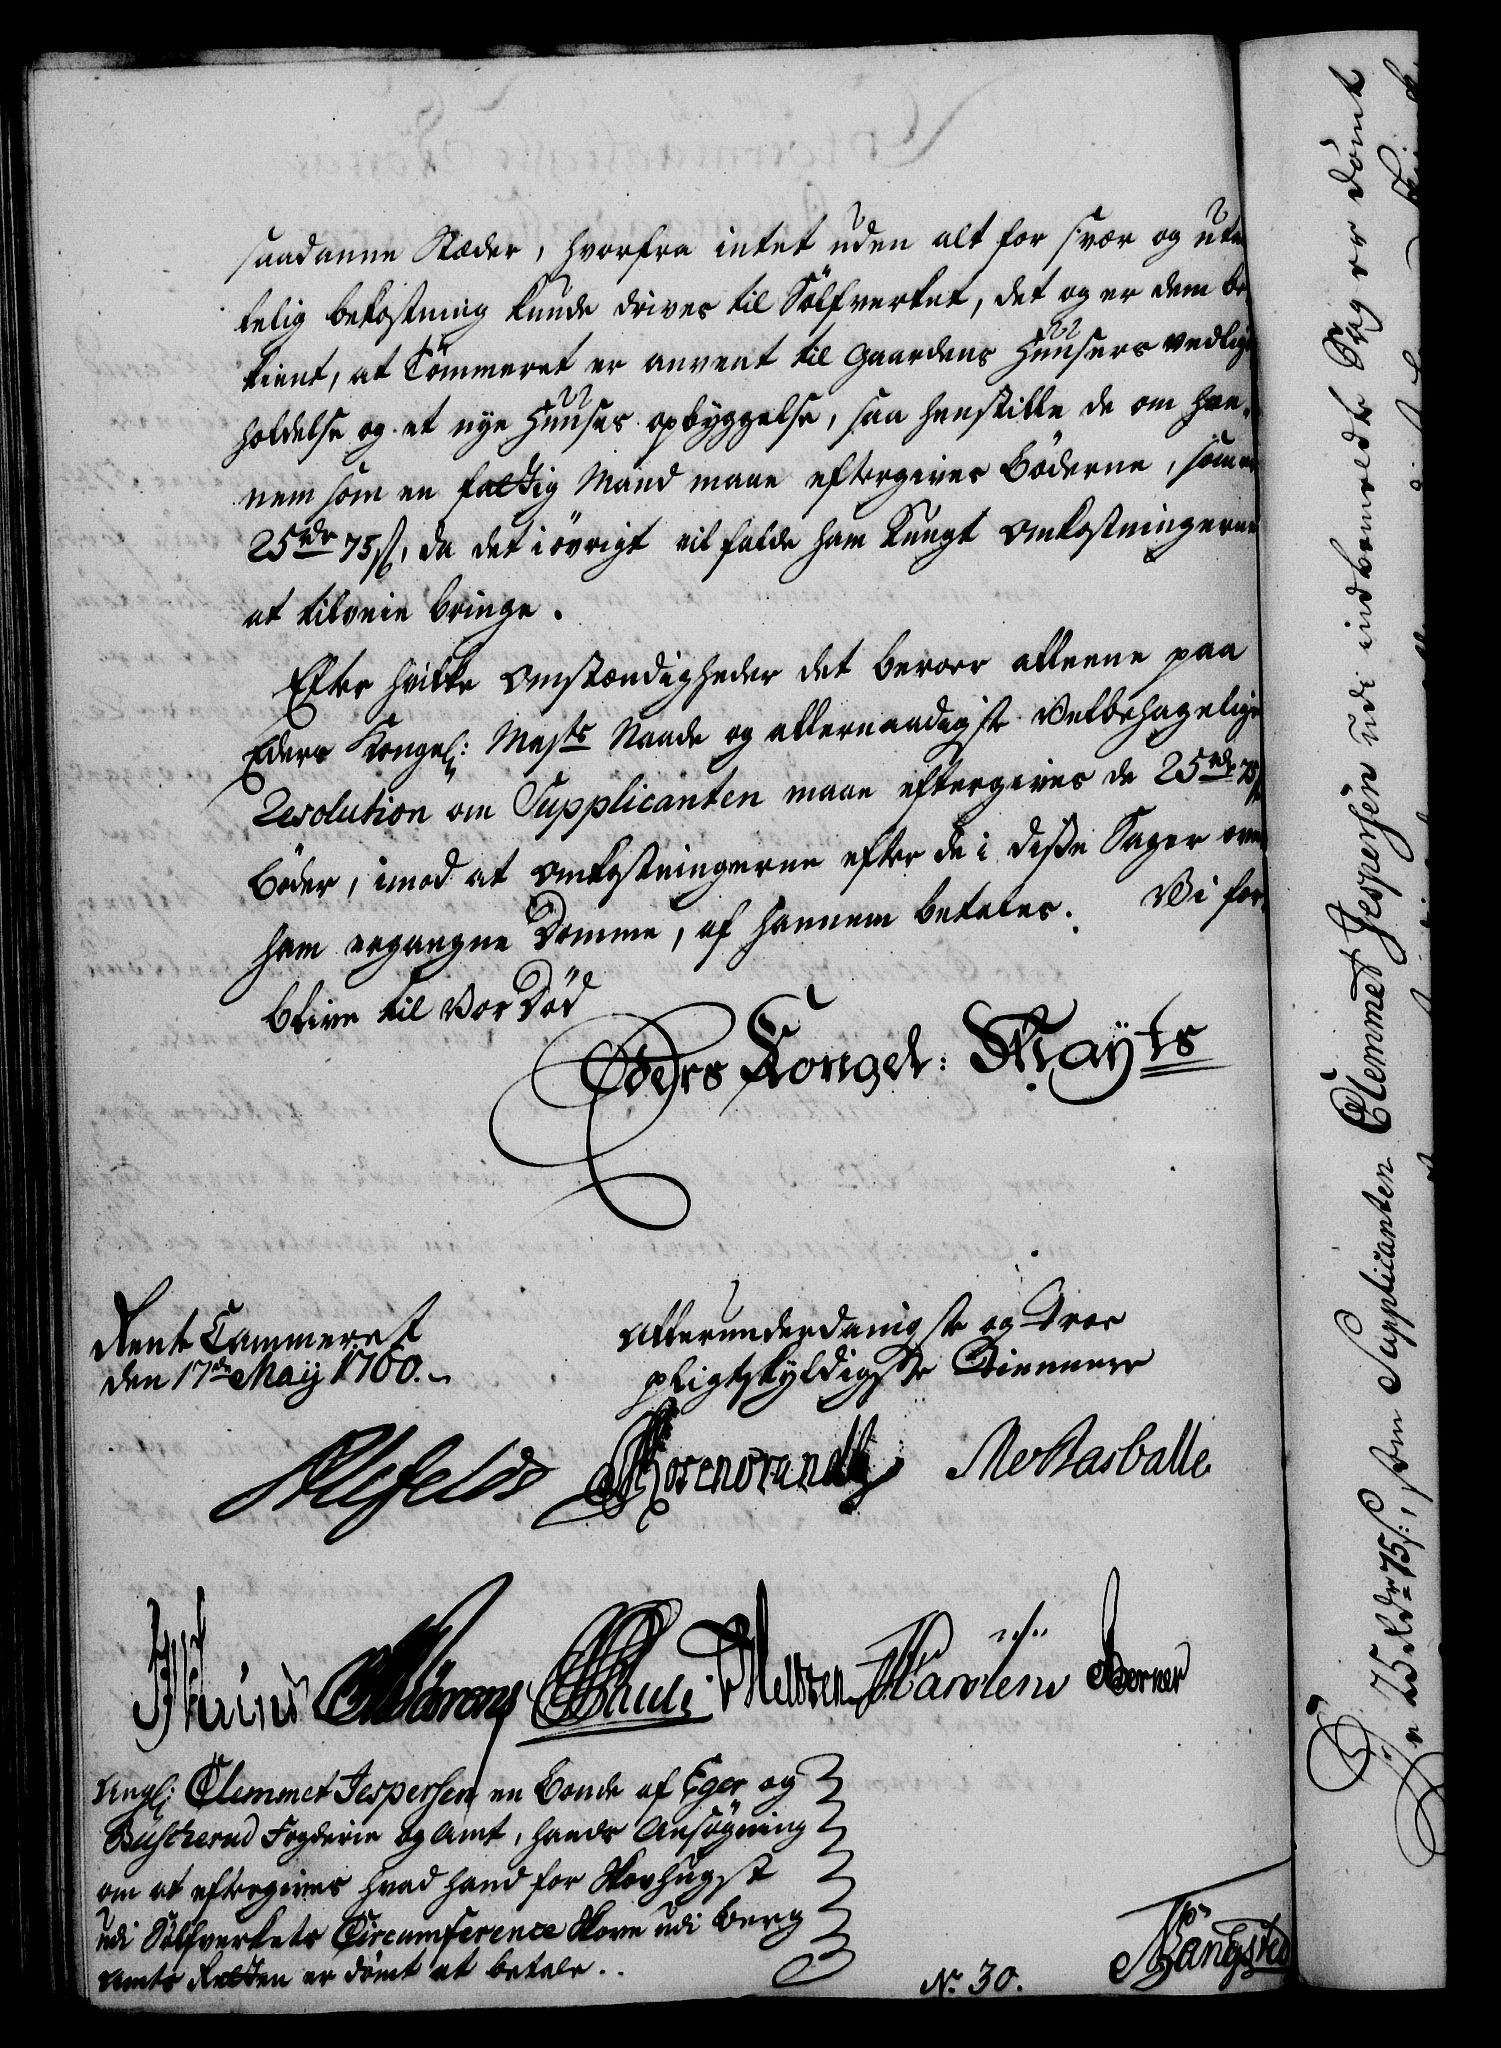 saadanne Stæder, hvorfra intet uden alt for svær og uta-
kelig bekostning kunde drives til Sölfverket, det og er dem be-
kient, at Tömmeret er anvent til Gaardens Huusers vedlige
holdelse og et nye Huuses opbyggelse, saa henstille de om han-
nem som en fattig Mand maae eftergives Böderne, som er
25 rdr 75 s, da det i övrigt vil falde ham tungt Omkostningerne
at tilveie bringe.
Efter hvilke Omstændigheder det beroer alleene paa
Eders Kongel: Mayts Naade og allernaadigste Velbehagelige
Resolution om Supplicanten maae eftergives de 25 rdr 75 s
Böder, imod at Omkostningerne efter de i disse Sager over
ham ergangne Domme, af hannem betales. Vi for-
blive til Vor Död
Eders Kongel: Mayts
Rente Cammeret
den 17de Maij 1760.
Allerunderdanigste og Troe
pligtskyldigste Tienere
Ahlefeldt Rosencrandtz
Schiele Meltzen Karsten Berner
Angl: Clemmet Jespersen en Bonde af Eger og
Buscherud Fogderie og Amt, hands Ansögning
om at eftergives hvad hand for Skovhugst
udi Sölfverkets Circumference Skove udi Berg
Amts Retten er dömt at betale.
No. 30.
Bangsted
De 25 Rdr 75 s:, som Supplicanten Clemmet Jespersen udi indbemeldte Sag er dömt